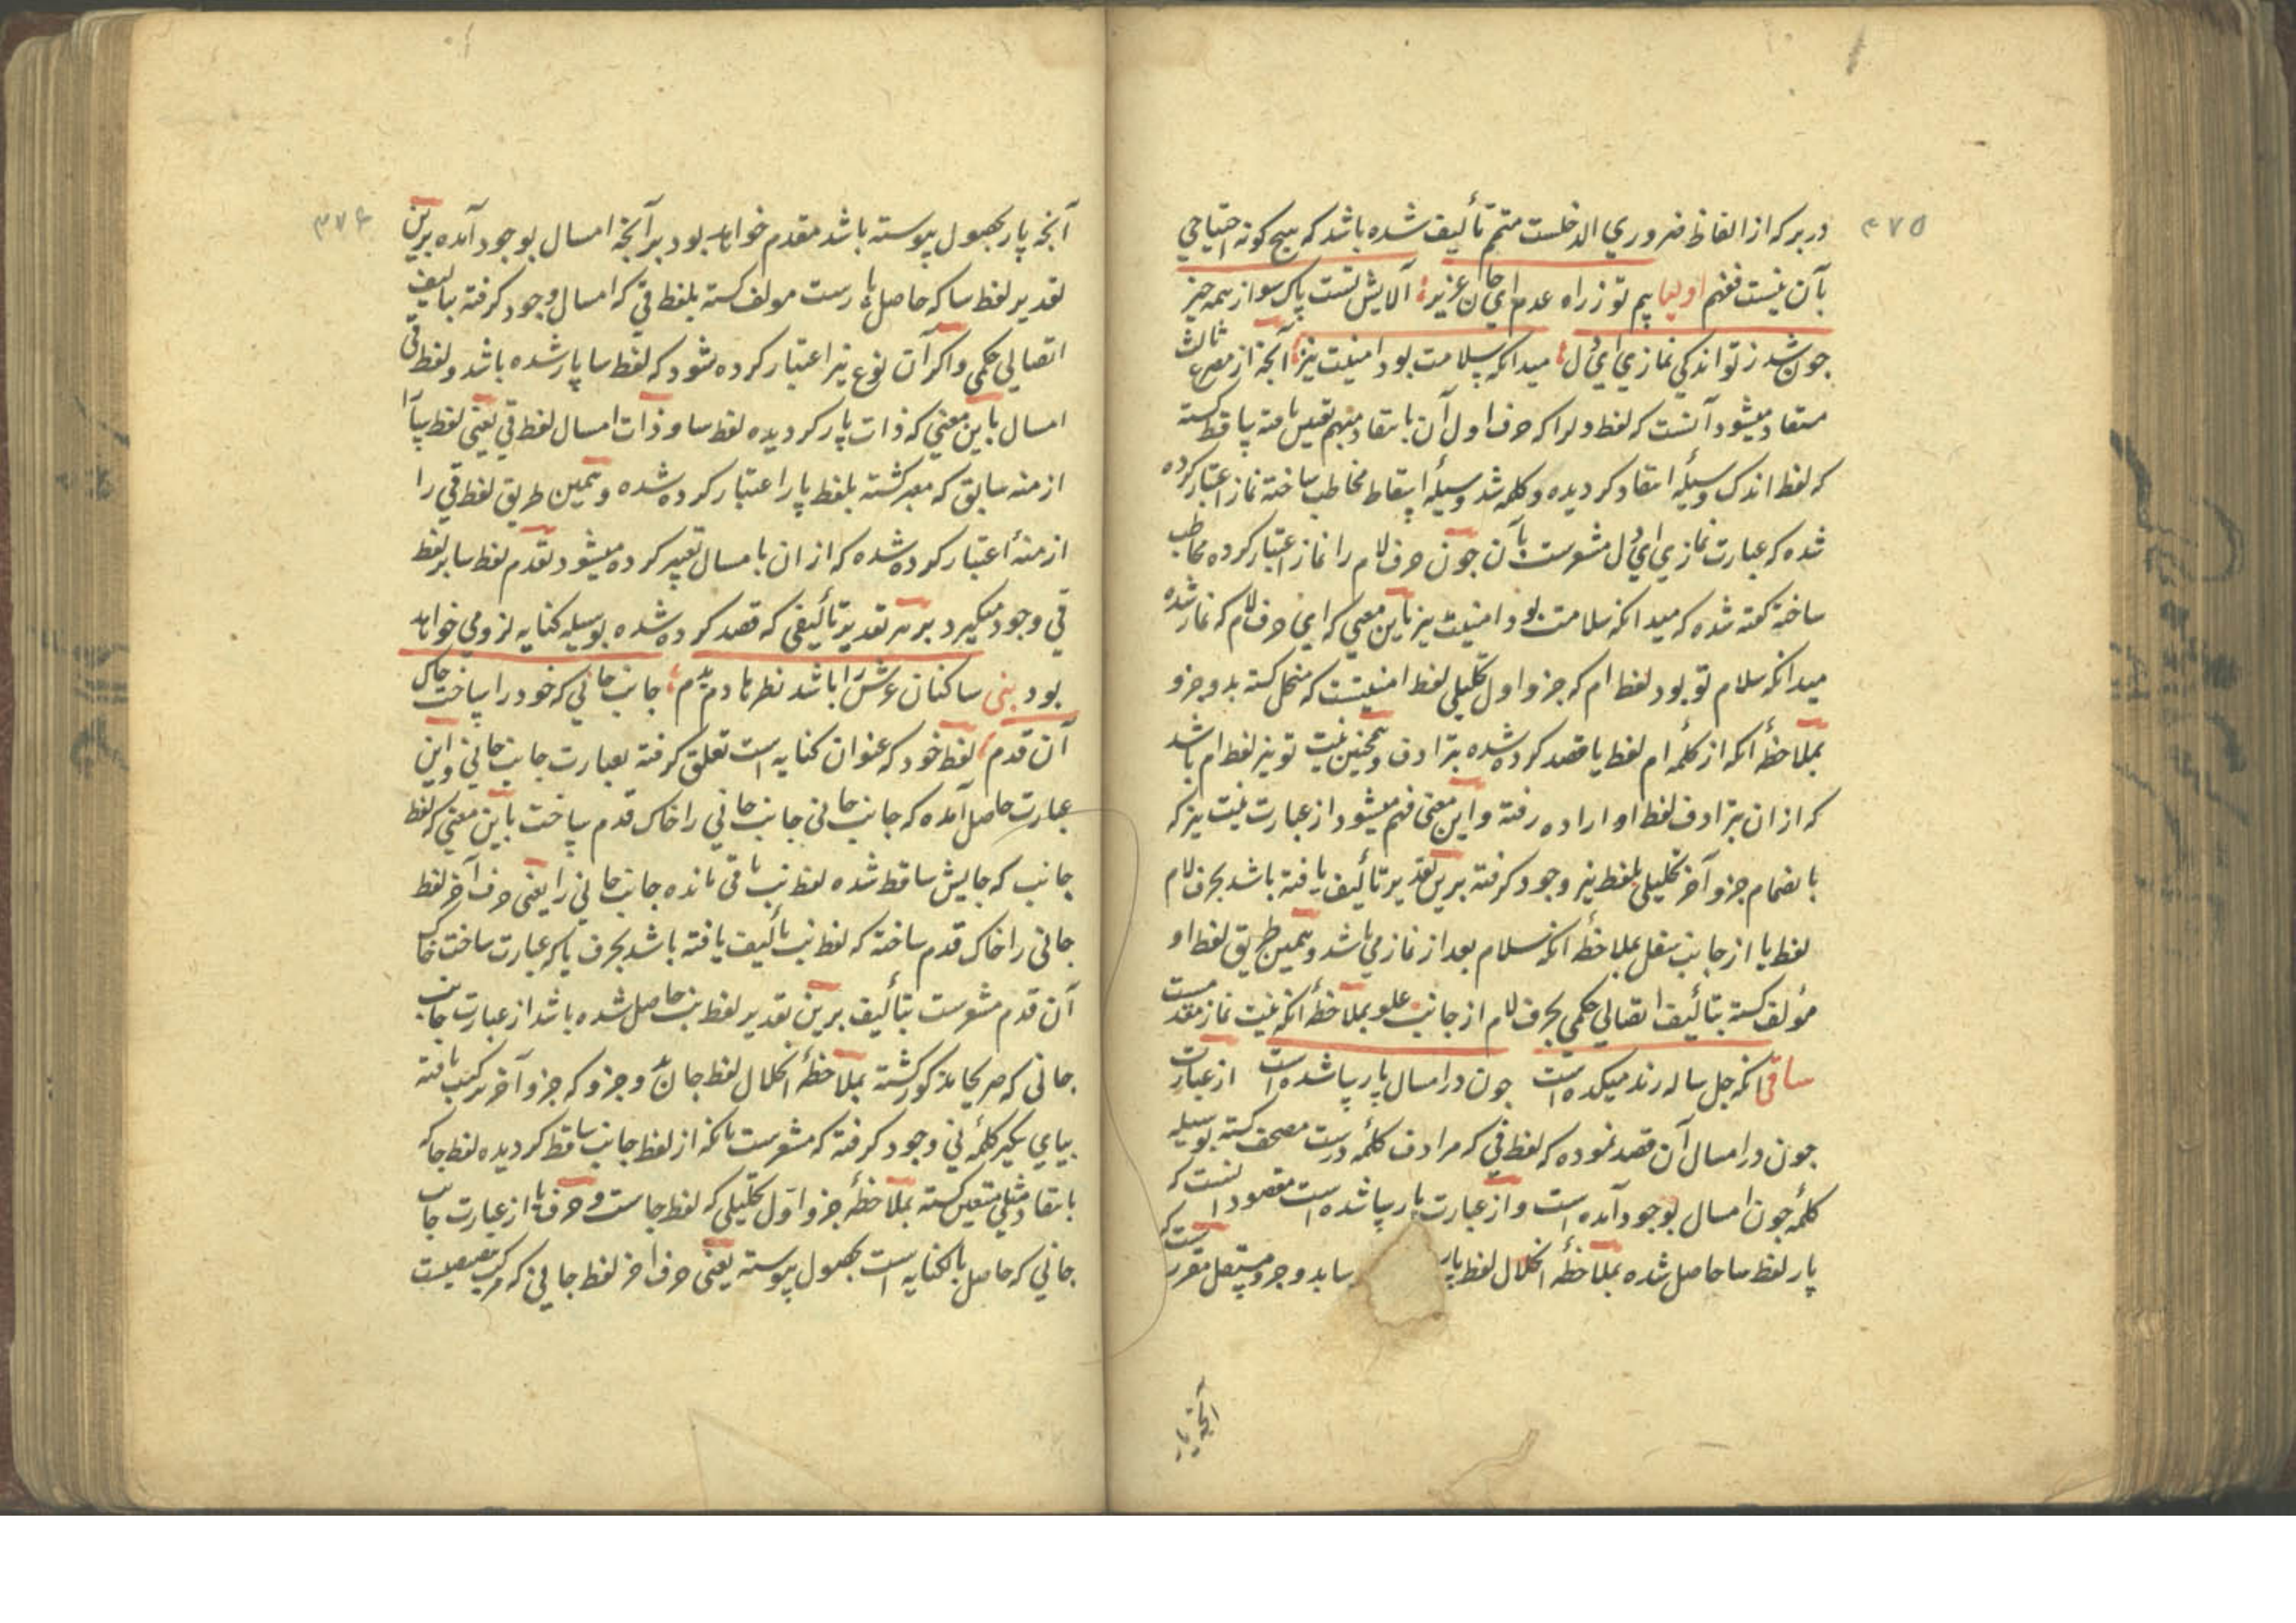 ٣٧٥
در بر که از الفاظ ضروري الدخلست متمم تأليف شده باشد که هيچ کونه احتياجي
بآن نيست فهم اوليا پيم تو ز راه عدم اي جان عزيز آلايش تست پاک سو از همه چيز
چون شد ز تو اندکي نمازي اي دل ميدانکه سلامت بود امنيت نيز آنچه از مصرع ثالث
مستفاد ميشود آنست که لفظ دل را که حرف اول آن بانتقاد مبهم تعين يافته ساقط کشته
که لفظ اندک وسيلۀ انتقاد کرديده و کلمۀ شد وسيلۀ اسقاط مخاطب ساخته نماز اعتبار کرده
شده که عبارت نمازي اي دل مشعرست بآن چون حرف لام را نماز اعتبار کرده مخاطب
ساخته کفته شده که ميدانکه سلامت بود امنيت نيز باين معني که اي حرف لام که نماز شده
ميدانکه سلام تو بود لفظ ام که جزو اول تحليلي لفظ امنيتست که منحل کشته بدو جزو
بملاحظۀ انکه از کلمۀ ام لفظ يا قصد کرده شده بترادف و همچنين نيت تو نيز لفظ ام باشد
که از ان بترادف لفظ او اراده رفته و اين معني فهم ميشود از عبارت نيت نيز که
بانضمام جزو آخر تحليلي بلفظ نيز وجود کرفته برين تقدير تأليف يافته باشد بحرف لام
لفظ يا از جانب سفل بملاحظۀ آنکه سلام بعد از نماز مي باشد و همين طريق لفظ او
مؤلف کشته بتأليف اتصالي حکمي بحرف لام از جانب علو بملاحظۀ انکه نيت نماز مقدمست
ساقي انکه چل ساله رند ميکده است چون در امسال پار پيدا شده است از عبارت
چون در امسال آن قصد نموده که لفظ في که مرادف کلمۀ درست مصحف کشته بوسيله
کلمۀ چون امسال بوجود آمده است و از عبارت پار پيدا شده است مقصود آنست که
پار لفظ سا حاصل شده بملاحظۀ انحلال لفظ پار سا بدو جزو مستقل مقررست که
آنچه پار
٣٧٦
آنچه پار بحصول پيوسته باشد مقدم خواهد بود بر آنچه امسال بوجود آمده برين
تقدير لفظ سا که حاصل پارست مولف کشته بلفظ قي که امسال وجود کرفته بتأليف
اتصالي حکمي و اکر آن نوع نيز اعتبار کرده شود که لفظ سا پار شده باشد و لفظ قي
امسال باين معني که ذات پار کرديده لفظ سا و ذات امسال لفظ قي يعني لفظ سا را
ازمنه سابق که معبر کشته بلفظ پار اعتبار کرده شده و همين طريق لفظ قي را
ازمنۀ اعتبار کرده شده که از ان بامسال تعبير کرده ميشود تقدم لفظ سا بر لفظ
قي وجود ميکيرد بر هر تقدير تأليفي که قصد کرده شده بوسيله کنايه لزومي خواهد
بود بني ساکنان عرش را باشد نظرها دم بدم جانب جاني که خود را ساخت خاک
آن قدم لفظ خود که عنوان کنايه است تعلق کرفته بعبارت جانب جاني و اين
عبارت حاصل آمده که جانب جاني جانب جاني را خاک قدم ساخت باين معني که لفظ
جانب که جايش ساقط شده لفظ نب باقي مانده جانب جاني را يعني حرف آخر لفظ
جاني را خاک قدم ساخته که لفظ نب تأليف يافته باشد بحرف يا که عبارت ساخت خاک
آن قدم مشعرست بتأليف برين تقدير لفظ بني حاصل شده باشد از عبارت جانب
جاني که صريحا مذکور کشته بملاحظۀ انحلال لفظ جانب بدو جزو که جزو آخر ترکيب يافته
بياي يکير کلمۀ ني وجود کرفته که مشعرست بانکه از لفظ جانب ساقط کرديده لفظ جا که
بانتقاد مثلي متعين کشته بملاحظۀ جزو اول تحليلي که لفظ جاست و حرف يا از عبارت جانب
جاني که حاصل بالکنايه است بحصول پيوسته يعني حرف آخر لفظ جاني که